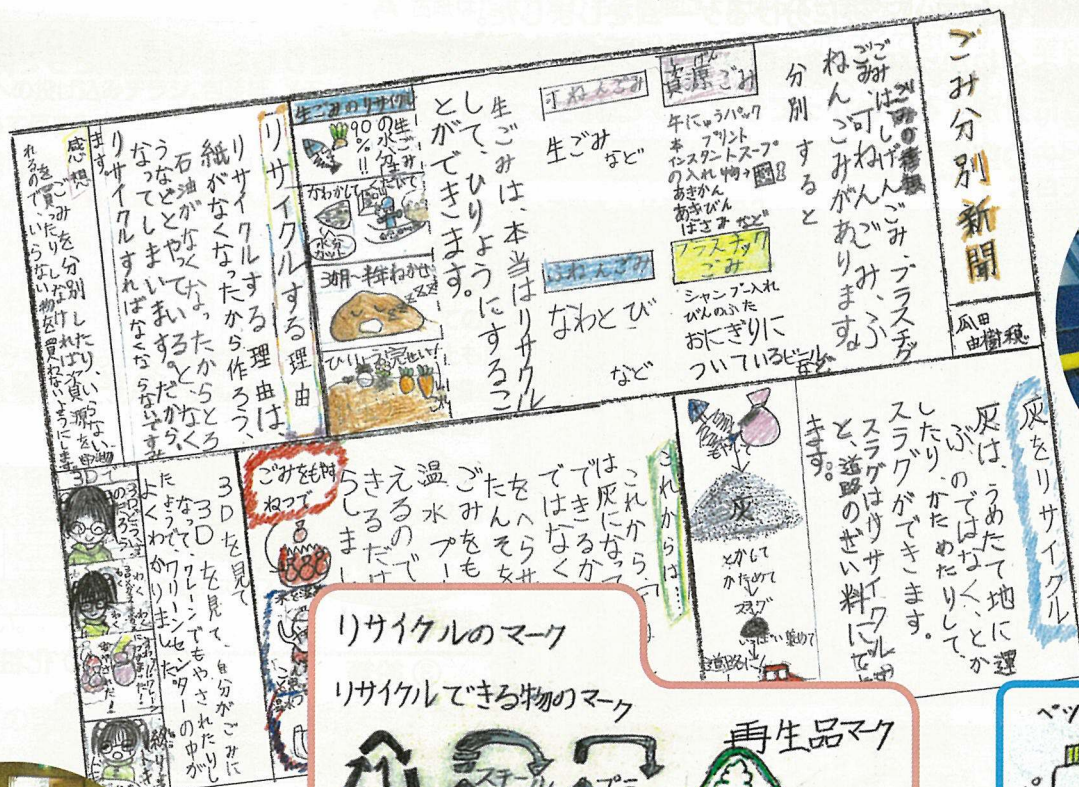 ごみ分別新聞
瓜田
由樹穂
ごみはしげんごみ、プラスチック
ごみ、可ねんごみ、ふ
ねんごみがあります。
分別すると
資源ごみ
牛にゅうパック
本 プリント
インスタントスープ
の入れ物
あきかん
あきびん
はさみなど
プラスチック
ごみ
シャンプー入れ
びんのふた
おにぎりに
ついているビニール
など
可ねんごみ
生ごみ
など
ふねんごみ
なわとび
など
生ごみは、本当はリサイクル
して、ひりょうにするこ
とができます。
生ごみのリサイクル
生ごみ
の水分
90%!!
かわかして
水分
カット
3カ月〜半年ねかせ
zzz
ひりょう完せい!
リサイクルする理由
リサイクルする理由は、
紙がなくなったから作ろう、
石油がなくなったからとろ
うなどとやっていると、なく
なってしまいます。だから、
リサイクルすればなくならないですみ
ます。
感想
ごみを分別したり、いらない物
を買ったりしなければ資源を守
れるので、いらない物を買わないようにします。
灰をリサイクル
灰は、うめたて地に運
ぶのではなく、とか
したり、かためたりして、
スラグができます。
スラグはリサイクルする
と、道路のざい料にで
きます。
もやして
灰
とかして
かためて
スラグ
いっぱい集めて
道路に!
これからは…
これから
は灰になって
できるか
ではなく
をへらせ
たんそを
ごみをも
温水プー
えるので
きるだけ
らしまし
ごみをもやす
ねつで
3Dを見て
3Dを見て、自分がごみに
なって、クレーンでもやされたりし
たようで、クリーンセンターの中が
よくわかりました。
リサイクルのマーク
リサイクルできる物のマーク
スチール
プラ
再生品マーク
ペッ